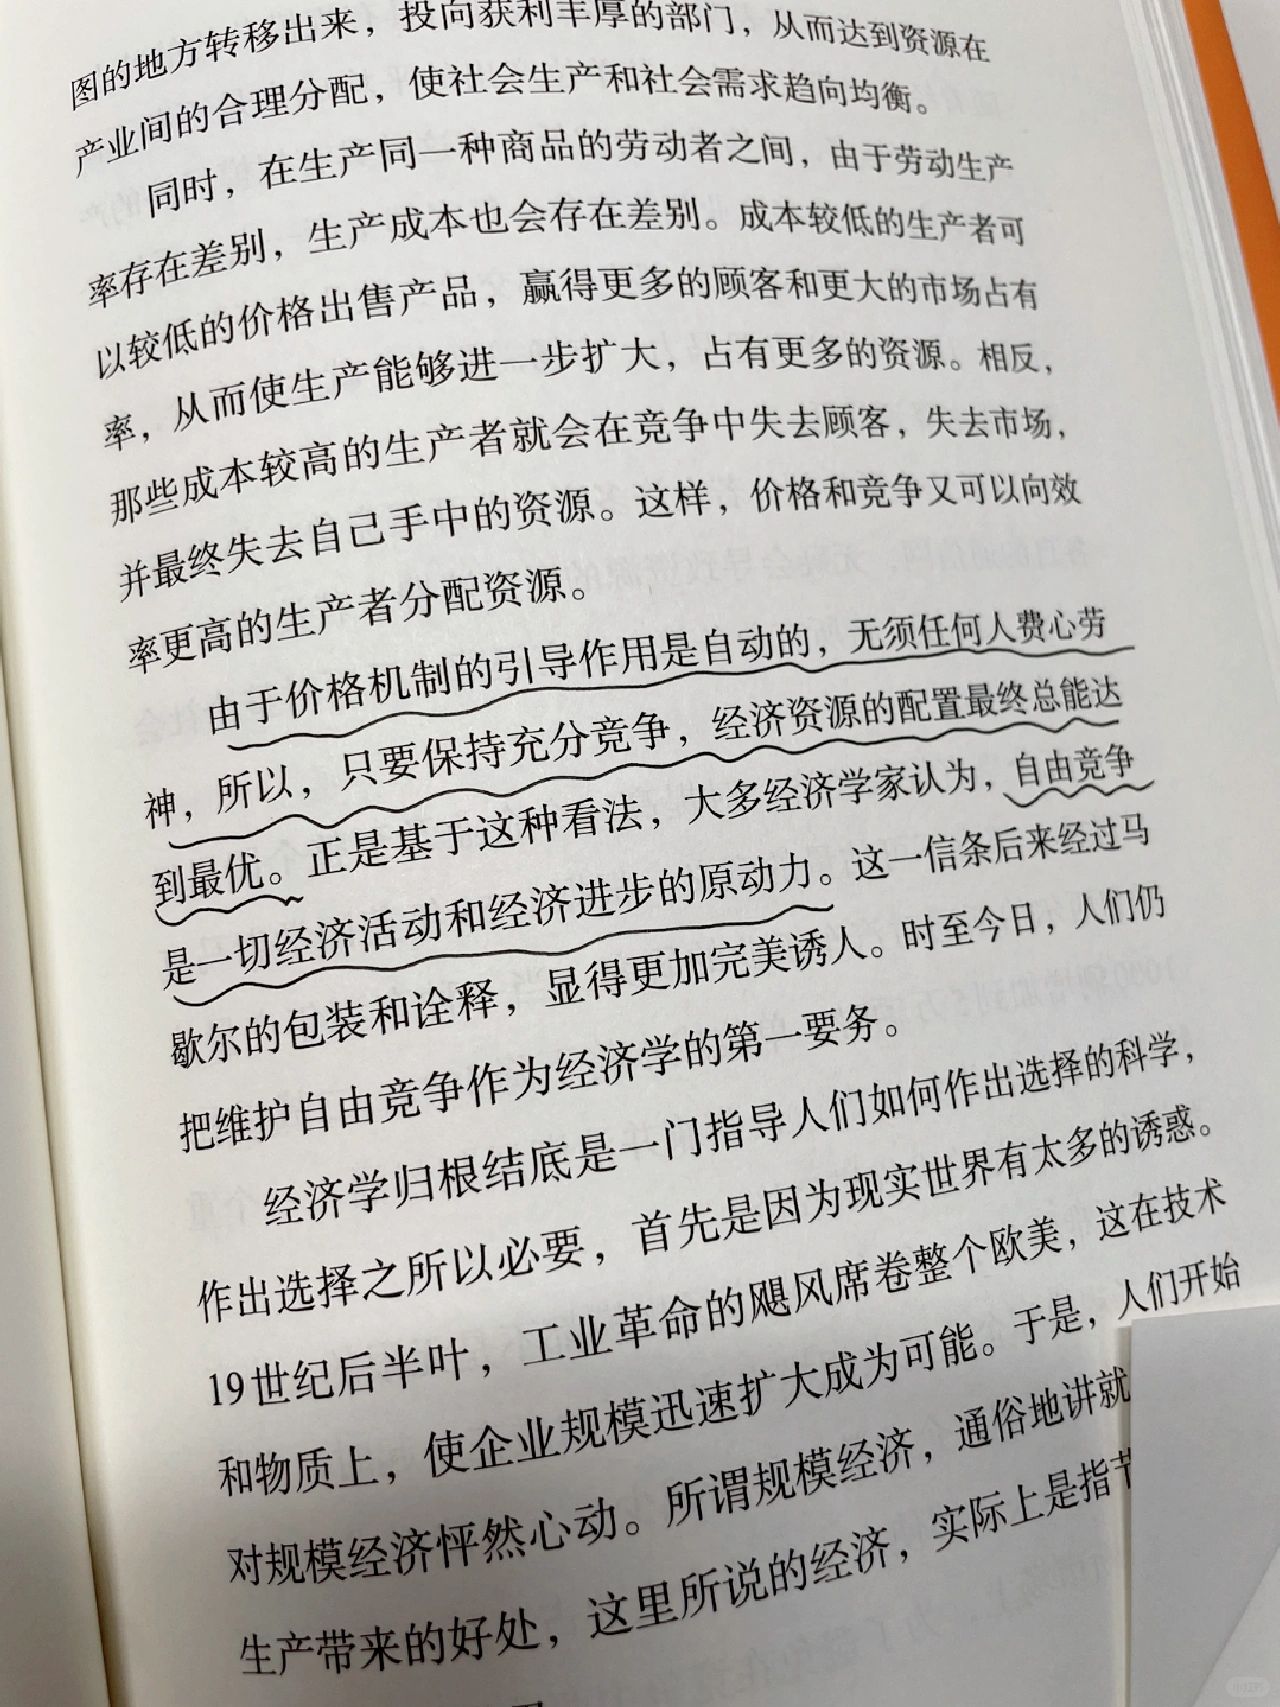 图的地方转移出来，投向获利丰厚的部门，从而达到资源在
产业间的合理分配，使社会生产和社会需求趋向均衡。
同时，在生产同一种商品的劳动者之间，由于劳动生产
率存在差别，生产成本也会存在差别。成本较低的生产者可
以较低的价格出售产品，赢得更多的顾客和更大的市场占有
率，从而使生产能够进一步扩大，占有更多的资源。相反，
那些成本较高的生产者就会在竞争中失去顾客，失去市场，
并最终失去自己手中的资源。这样，价格和竞争又可以向效
率更高的生产者分配资源。
由于价格机制的引导作用是自动的，无须任何人费心劳
神，所以，只要保持充分竞争，经济资源的配置最终总能达
到最优。正是基于这种看法，大多经济学家认为，自由竞争
是一切经济活动和经济进步的原动力。这一信条后来经过马
歇尔的包装和诠释，显得更加完美诱人。时至今日，人们仍
把维护自由竞争作为经济学的第一要务。
经济学归根结底是一门指导人们如何作出选择的科学，
作出选择之所以必要，首先是因为现实世界有太多的诱惑。
19世纪后半叶，工业革命的飓风席卷整个欧美，这在技术
和物质上，使企业规模迅速扩大成为可能。于是，人们开始
对规模经济怦然心动。所谓规模经济，通俗地讲就
生产带来的好处，这里所说的经济，实际上是指